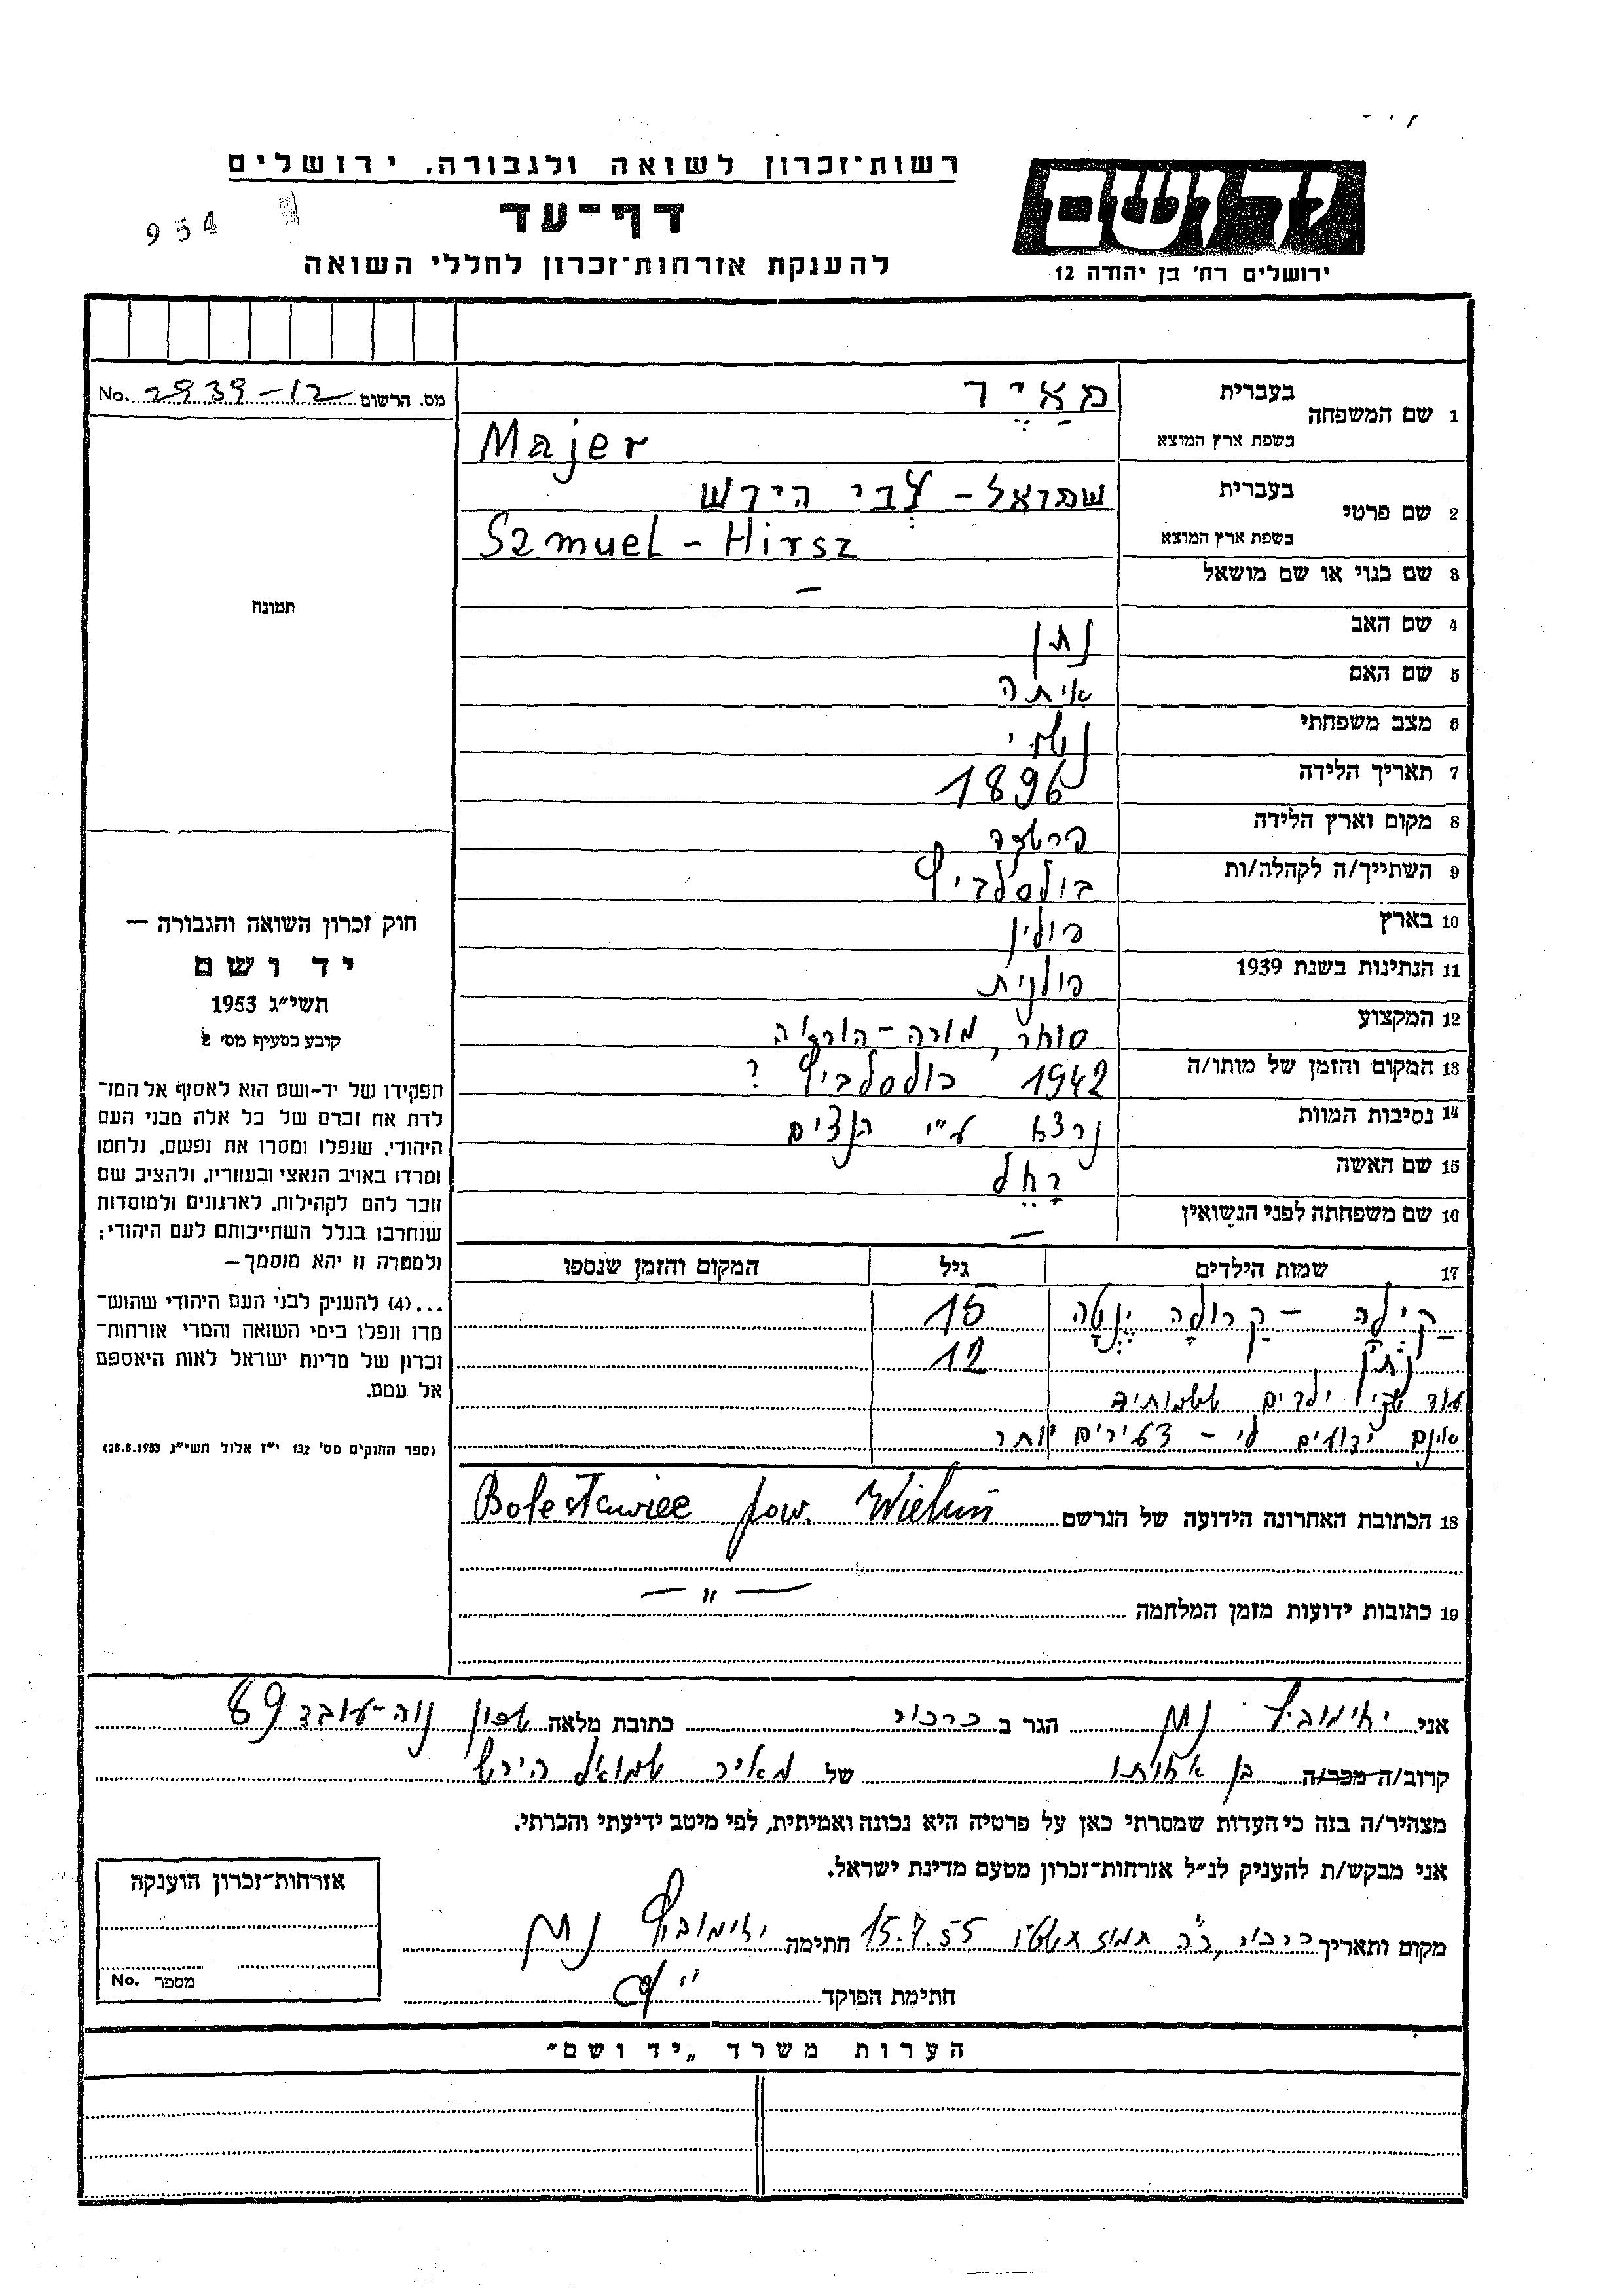 רשות־זכרון לשואה ולגבורה, ירושלים
דף־עד
להענקת אזרחות־זכרון לחללי השואה
954
יד ושם
ירושלים רח' בן יהודה 12
מס. הרשום 2939-12 No.
1 שם המשפחה
בעברית מאיר
בשפת ארץ המוצא Majer
2 שם פרטי
בעברית שמואל - צבי הירש
בשפת ארץ המוצא Szmuel - Hirsz
3 שם כנוי או שם מושאל –
4 שם האב נתן
5 שם האם איתה
6 מצב משפחתי נשוי
7 תאריך הלידה 1896
8 מקום וארץ הלידה
9 השתייך/ה לקהלה/ות בולסלביץ
10 בארץ פולין
11 הנתינות בשנת 1939 פולנית
12 המקצוע סוחר, מורה - הוראה
13 המקום והזמן של מותו/ה 1942 בולסלביץ ?
14 נסיבות המוות נרצח ע"י הנצים
15 שם האשה רחל
16 שם משפחתה לפני הנשואין –
17 שמות הילדים גיל המקום והזמן שנספו
קילה - קרולה ינטה 15
נתן 12
עוד שני ילדים ששמותיהם
אינם ידועים לי - צעירים יותר
18 הכתובת האחרונה הידועה של הנרשם Bolesławiec pow. Wieluń
19 כתובות ידועות מזמן המלחמה — " —
תמונה
חוק זכרון השואה והגבורה —
יד ושם
תשי"ג 1953
קובע בסעיף מס' 2
תפקידו של יד-ושם הוא לאסוף אל המו־
לדת את זכרם של כל אלה מבני העם
היהודי, שנפלו ומסרו את נפשם, נלחמו
ומרדו באויב הנאצי ובעוזריו, ולהציב שם
וזכר להם לקהילות, לארגונים ולמוסדות
שנחרבו בגלל השתייכותם לעם היהודי;
ולמטרה זו יהא מוסמך —
...(4) להענק לבני העם היהודי שהוש־
מדו ונפלו בימי השואה והמרי אזרחות־
זכרון של מדינת ישראל לאות היאספם
אל עמם.
(ספר החוקים מס' 132 י"ז אלול תשי"ג 28.8.1953)
אני יחימוביץ נתן הגר ב כרכור כתובת מלאה שכון נוה-עובד 89
קרוב/ה מכר/ה בן אחותו של מאיר שמואל הירש
מצהיר/ה בזה כי העדות שמסרתי כאן על פרטיה היא נכונה ואמיתית, לפי מיטב ידיעתי והכרתי.
אני מבקש/ת להעניק לנ"ל אזרחות־זכרון מטעם מדינת ישראל.
מקום ותאריך כרכור, כ"ה תמוז תשט"ו 15.7.55 חתימה יחימוביץ נתן
חתימת הפוקד
אזרחות־זכרון הוענקה
מספר No.
הערות משרד „יד ושם"